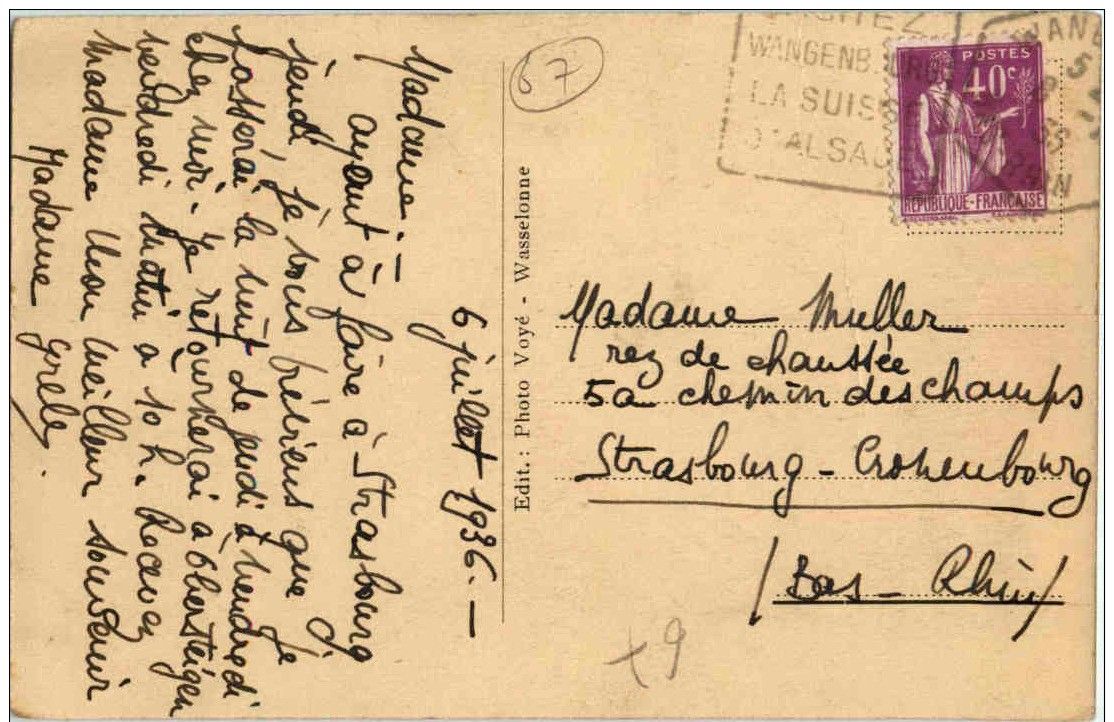 6 juillet 1936.—
Madame.—
ayant à faire à Strasbourg
jeudi, je vous préviens que
passerai la nuit de jeudi à vendredi
chez moi. Je retournerai à Obersteigen
vendredi matin à 10 h. Recevez
Madame mon meilleur souvenir
Madame
Edit. : Photo Voyé - Wasselonne
67
WANGENBOURG
LA SUISSE
D'ALSACE
POSTES
40c
RÉPUBLIQUE-FRANÇAISE
Madame Muller
rez de chaussée
5a chemin des champs
Strasbourg - Cronenbourg
/Bas-Rhin/
+9